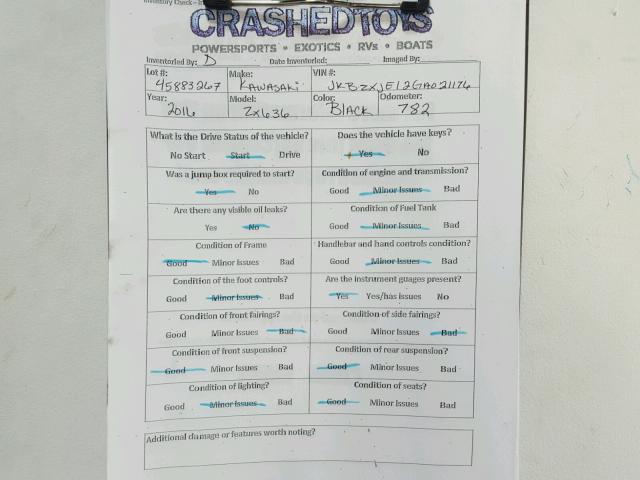 Inventory Check - In
CRASHEDTOYS
POWERSPORTS • EXOTICS • RVs • BOATS
Inventoried By: D Date Inventoried: Imaged By:
Lot #: Make: VIN #:
45883267 KAWASAKI JKBZXJE12GA021176
Year: Model: Color: Odometer:
2016 ZX636 BLACK 782
What is the Drive Status of the vehicle? Does the vehicle have keys?
No Start Start Drive Yes No
Was a jump box required to start? Condition of engine and transmission?
Yes No Good Minor Issues Bad
Are there any visible oil leaks? Condition of Fuel Tank
Yes No Good Minor Issues Bad
Condition of Frame Handlebar and hand controls condition?
Good Minor Issues Bad Good Minor Issues Bad
Condition of the foot controls? Are the instrument guages present?
Good Minor Issues Bad Yes Yes/has issues No
Condition of front fairings? Condition of side fairings?
Good Minor Issues Bad Good Minor Issues Bad
Condition of front suspension? Condition of rear suspension?
Good Minor Issues Bad Good Minor Issues Bad
Condition of lighting? Condition of seats?
Good Minor Issues Bad Good Minor Issues Bad
Additional damage or features worth noting?